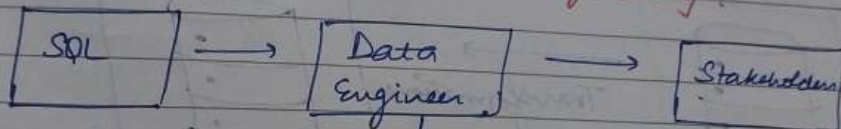 SQL
Data
Engineer
Stakeholders